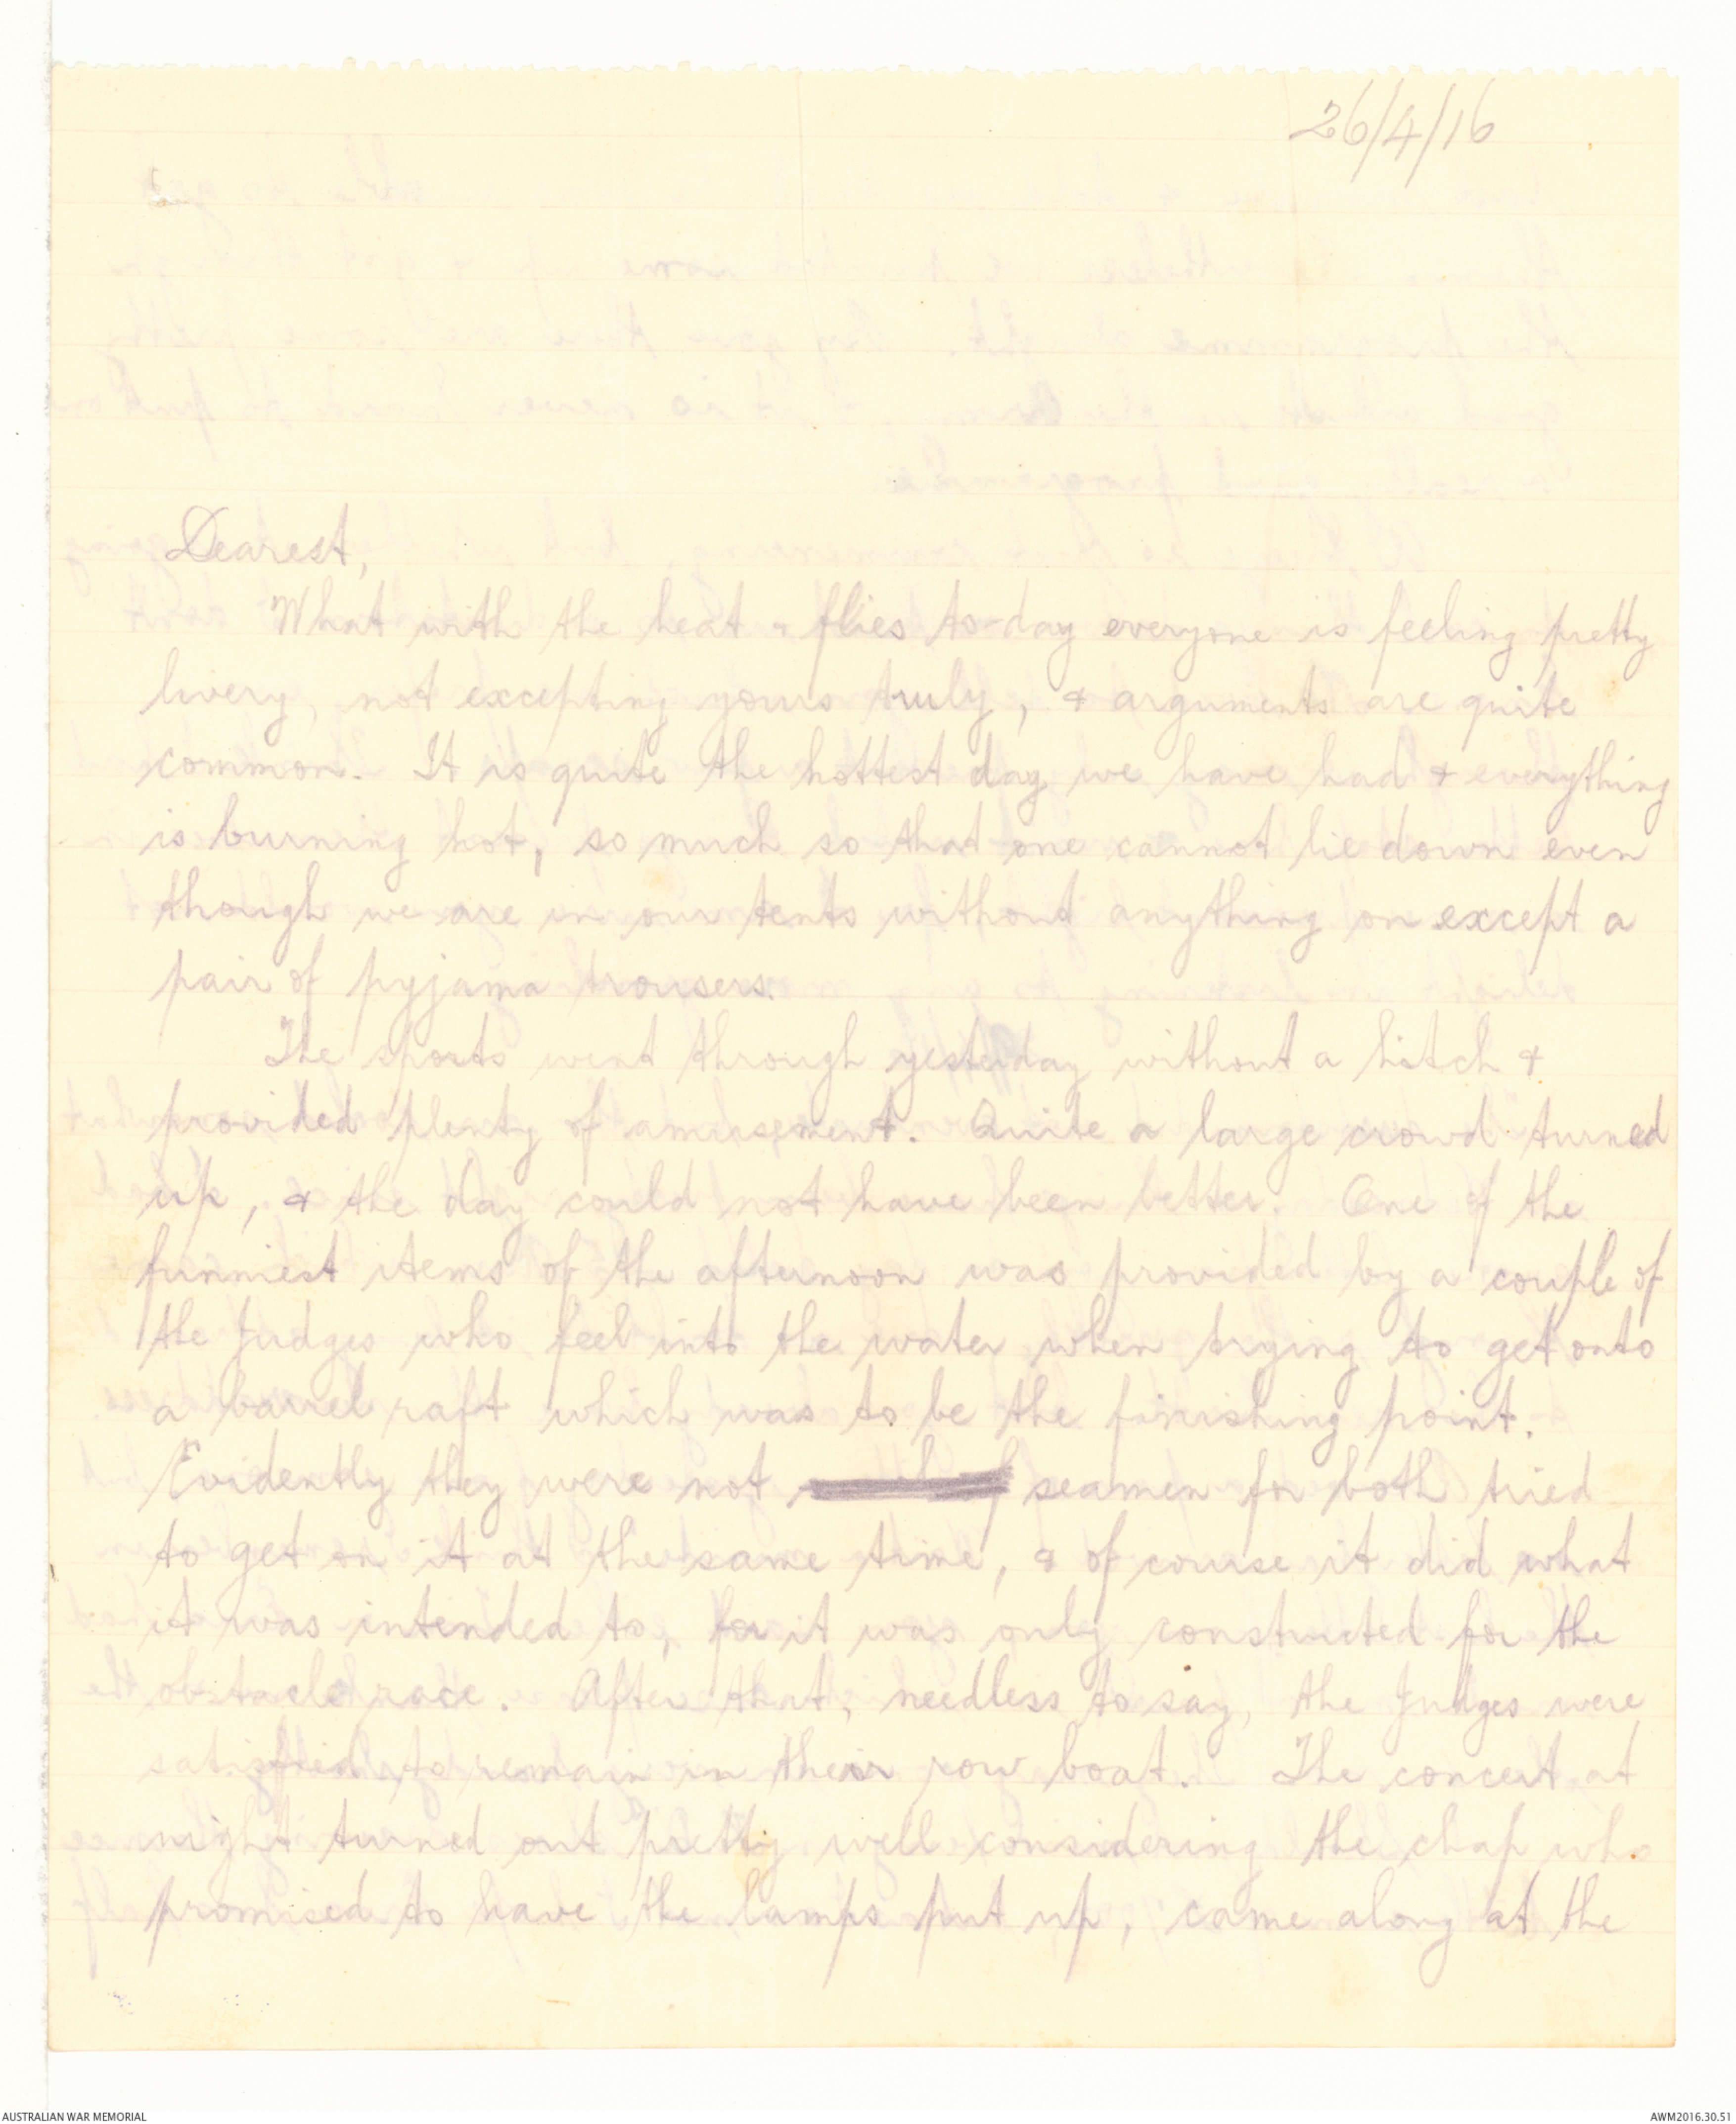 26/4/16
Dearest,
What with the heat & flies to-day everyone is feeling pretty
livery, not excepting yours truly, & arguments are quite
common. It is quite the hottest day we have had & everything
is burning hot, so much so that one cannot lie down even
though we are in our tents without anything on except a
pair of pyjama trousers.
The sports went through yesterday without a hitch &
provided plenty of amusement. Quite a large crowd turned
up, & the day could not have been better. One of the
funniest items of the afternoon was provided by a couple of
the Judges who feel into the water when trying to get onto
a barrel raft which was to be the finishing point.
Evidently they were not seamen for both tried
to get on it at the same time, & of course it did what
it was intended to, for it was only constructed for the
obstacle race. After that, needless to say, the Judges were
satisfied to remain in their row boat. The concert at
night turned out pretty well considering the chap who
promised to have the lamps put up, came along at the
AUSTRALIAN WAR MEMORIAL
AWM2016.30.51